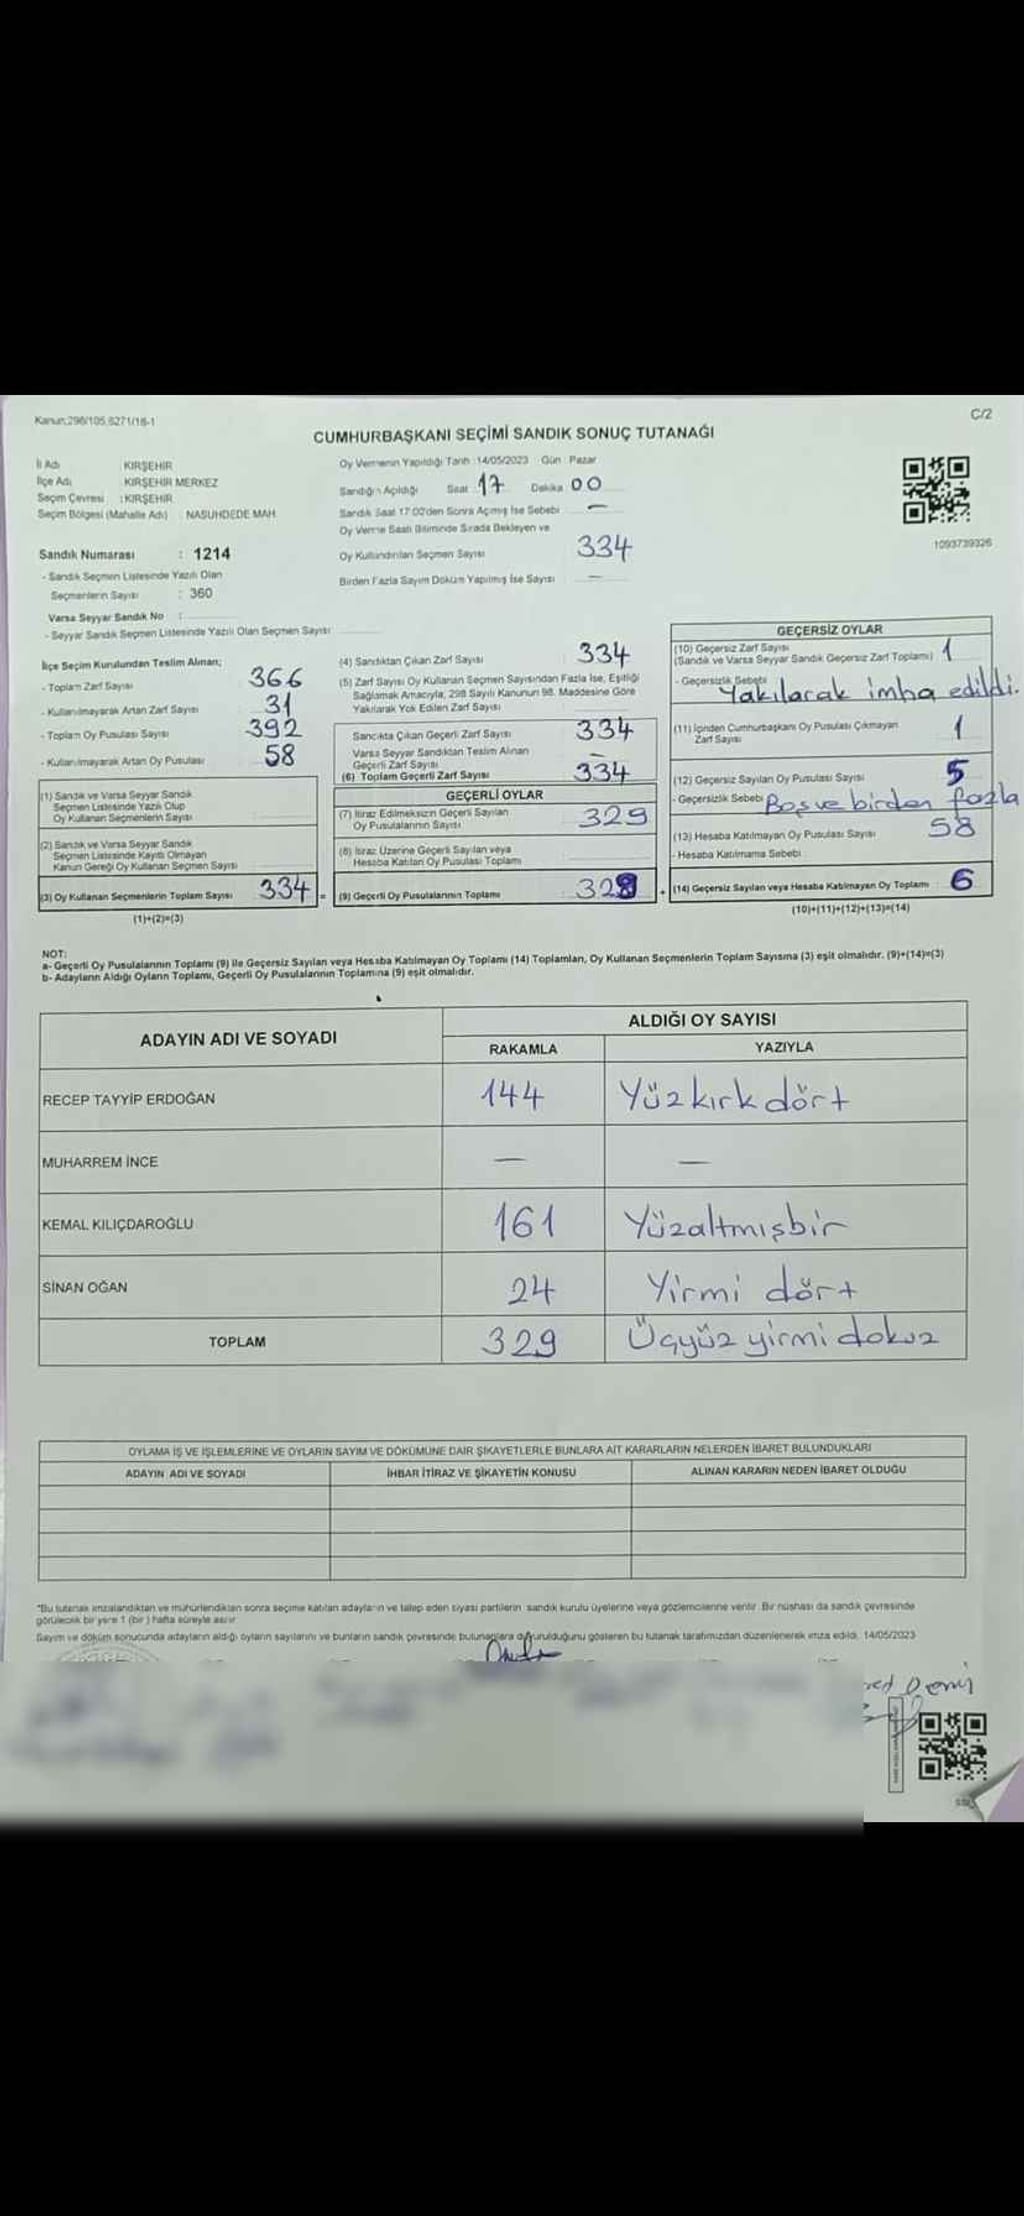 Kanun:298/105,6271/18-1
C/2
CUMHURBAŞKANI SEÇİMİ SANDIK SONUÇ TUTANAĞI
İl Adı : KIRŞEHİR
İlçe Adı : KIRŞEHİR MERKEZ
Seçim Çevresi : KIRŞEHİR
Seçim Bölgesi (Mahalle Adı) : NASUHDEDE MAH.
Oy Vermenin Yapıldığı Tarih : 14/05/2023 Gün : Pazar
Sandığın Açıldığı Saat 17 Dakika 00
Sandık Saat 17:00'den Sonra Açmış İse Sebebi —
Oy Verme Saati Bitiminde Sırada Bekleyen ve
Oy Kullandırılan Seçmen Sayısı 334
Birden Fazla Sayım Döküm Yapılmış İse Sayısı —
1093739326
Sandık Numarası : 1214
- Sandık Seçmen Listesinde Yazılı Olan
Seçmenlerin Sayısı : 360
Varsa Seyyar Sandık No :
- Seyyar Sandık Seçmen Listesinde Yazılı Olan Seçmen Sayısı
İlçe Seçim Kurulundan Teslim Alınan;
- Toplam Zarf Sayısı 366
- Kullanılmayarak Artan Zarf Sayısı 31
- Toplam Oy Pusulası Sayısı 392
- Kullanılmayarak Artan Oy Pusulası 58
(1) Sandık ve Varsa Seyyar Sandık
Seçmen Listesinde Yazılı Olup
Oy Kullanan Seçmenlerin Sayısı
(2) Sandık ve Varsa Seyyar Sandık
Seçmen Listesinde Kayıtlı Olmayan
Kanun Gereği Oy Kullanan Seçmen Sayısı
(3) Oy Kullanan Seçmenlerin Toplam Sayısı 334 =
(1)+(2)=(3)
(4) Sandıktan Çıkan Zarf Sayısı 334
(5) Zarf Sayısı Oy Kullanan Seçmen Sayısından Fazla İse, Eşitliği
Sağlamak Amacıyla, 298 Sayılı Kanunun 98. Maddesine Göre
Yakılarak Yok Edilen Zarf Sayısı
Sandıkta Çıkan Geçerli Zarf Sayısı 334
Varsa Seyyar Sandıktan Teslim Alınan
Geçerli Zarf Sayısı —
(6) Toplam Geçerli Zarf Sayısı 334
GEÇERLİ OYLAR
(7) İtiraz Edilmeksizin Geçerli Sayılan
Oy Pusulalarının Sayısı 329
(8) İtiraz Üzerine Geçerli Sayılan veya
Hesaba Katılan Oy Pusulası Toplamı
(9) Geçerli Oy Pusulalarının Toplamı 328 +
GEÇERSİZ OYLAR
(10) Geçersiz Zarf Sayısı
(Sandık ve Varsa Seyyar Sandık Geçersiz Zarf Toplamı) 1
- Geçersizlik Sebebi Yakılarak imha edildi.
(11) İçinden Cumhurbaşkanı Oy Pusulası Çıkmayan
Zarf Sayısı 1
(12) Geçersiz Sayılan Oy Pusulası Sayısı 5
- Geçersizlik Sebebi Boş ve birden fazla
(13) Hesaba Katılmayan Oy Pusulası Sayısı 58
- Hesaba Katılmama Sebebi
(14) Geçersiz Sayılan veya Hesaba Katılmayan Oy Toplamı 6
(10)+(11)+(12)+(13)=(14)
NOT:
a- Geçerli Oy Pusulalarının Toplamı (9) ile Geçersiz Sayılan veya Hesaba Katılmayan Oy Toplamı (14) Toplamları, Oy Kullanan Seçmenlerin Toplam Sayısına (3) eşit olmalıdır. (9)+(14)=(3)
b- Adayların Aldığı Oyların Toplamı, Geçerli Oy Pusulalarının Toplamına (9) eşit olmalıdır.
ADAYIN ADI VE SOYADI
ALDIĞI OY SAYISI
RAKAMLA YAZIYLA
RECEP TAYYİP ERDOĞAN 144 Yüzkırkdört
MUHARREM İNCE — —
KEMAL KILIÇDAROĞLU 161 Yüzaltmışbir
SİNAN OĞAN 24 Yirmi dört
TOPLAM 329 Üçyüz yirmi dokuz
OYLAMA İŞ VE İŞLEMLERİNE VE OYLARIN SAYIM VE DÖKÜMÜNE DAİR ŞİKAYETLERLE BUNLARA AİT KARARLARIN NELERDEN İBARET BULUNDUKLARI
ADAYIN ADI VE SOYADI İHBAR İTİRAZ VE ŞİKAYETİN KONUSU ALINAN KARARIN NEDEN İBARET OLDUĞU
*Bu tutanak imzalandıktan ve mühürlendikten sonra seçime katılan adayların ve talep eden siyasi partilerin sandık kurulu üyelerine veya gözlemcilerine verilir. Bir nüshası da sandık çevresinde
görülecek bir yere 1 (bir) hafta süreyle asılır.
Sayım ve döküm sonucunda adayların aldığı oyların sayılarını ve bunların sandık çevresinde bulunanlara duyurulduğunu gösteren bu tutanak tarafımızdan düzenlenerek imza edildi. 14/05/2023